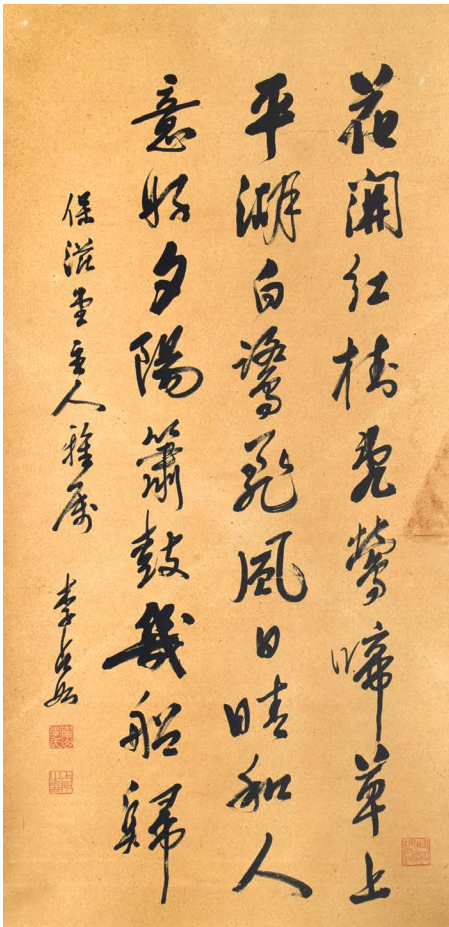 花開紅樹亂鶯啼草上
平湖白鷺飛風日晴和人
意好夕陽簫鼓幾船歸
保滋堂主人雅屬 李